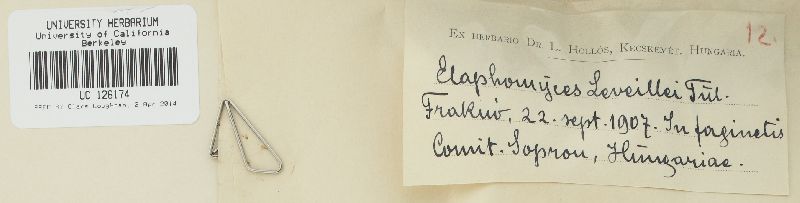 UNIVERSITY HERBARIUM
University of California
Berkeley
UC 126174
PREP BY Clare Loughran, 2 Apr 2014
12.
Ex herbario Dr. L. Hollós, Kecskemét, Hungaria.
Elaphomyces Leveillei Tul.
Fraknó, 22. sept. 1907. In faginetis
Comit. Sopron, Hungariae.